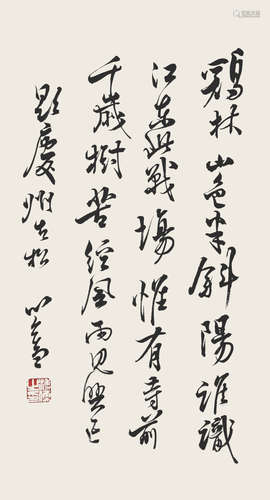 鷄林山色半斜陽誰識
江東此戰場惟有寺前
千歲樹經風雨見興亡
題慶州古松 心畬